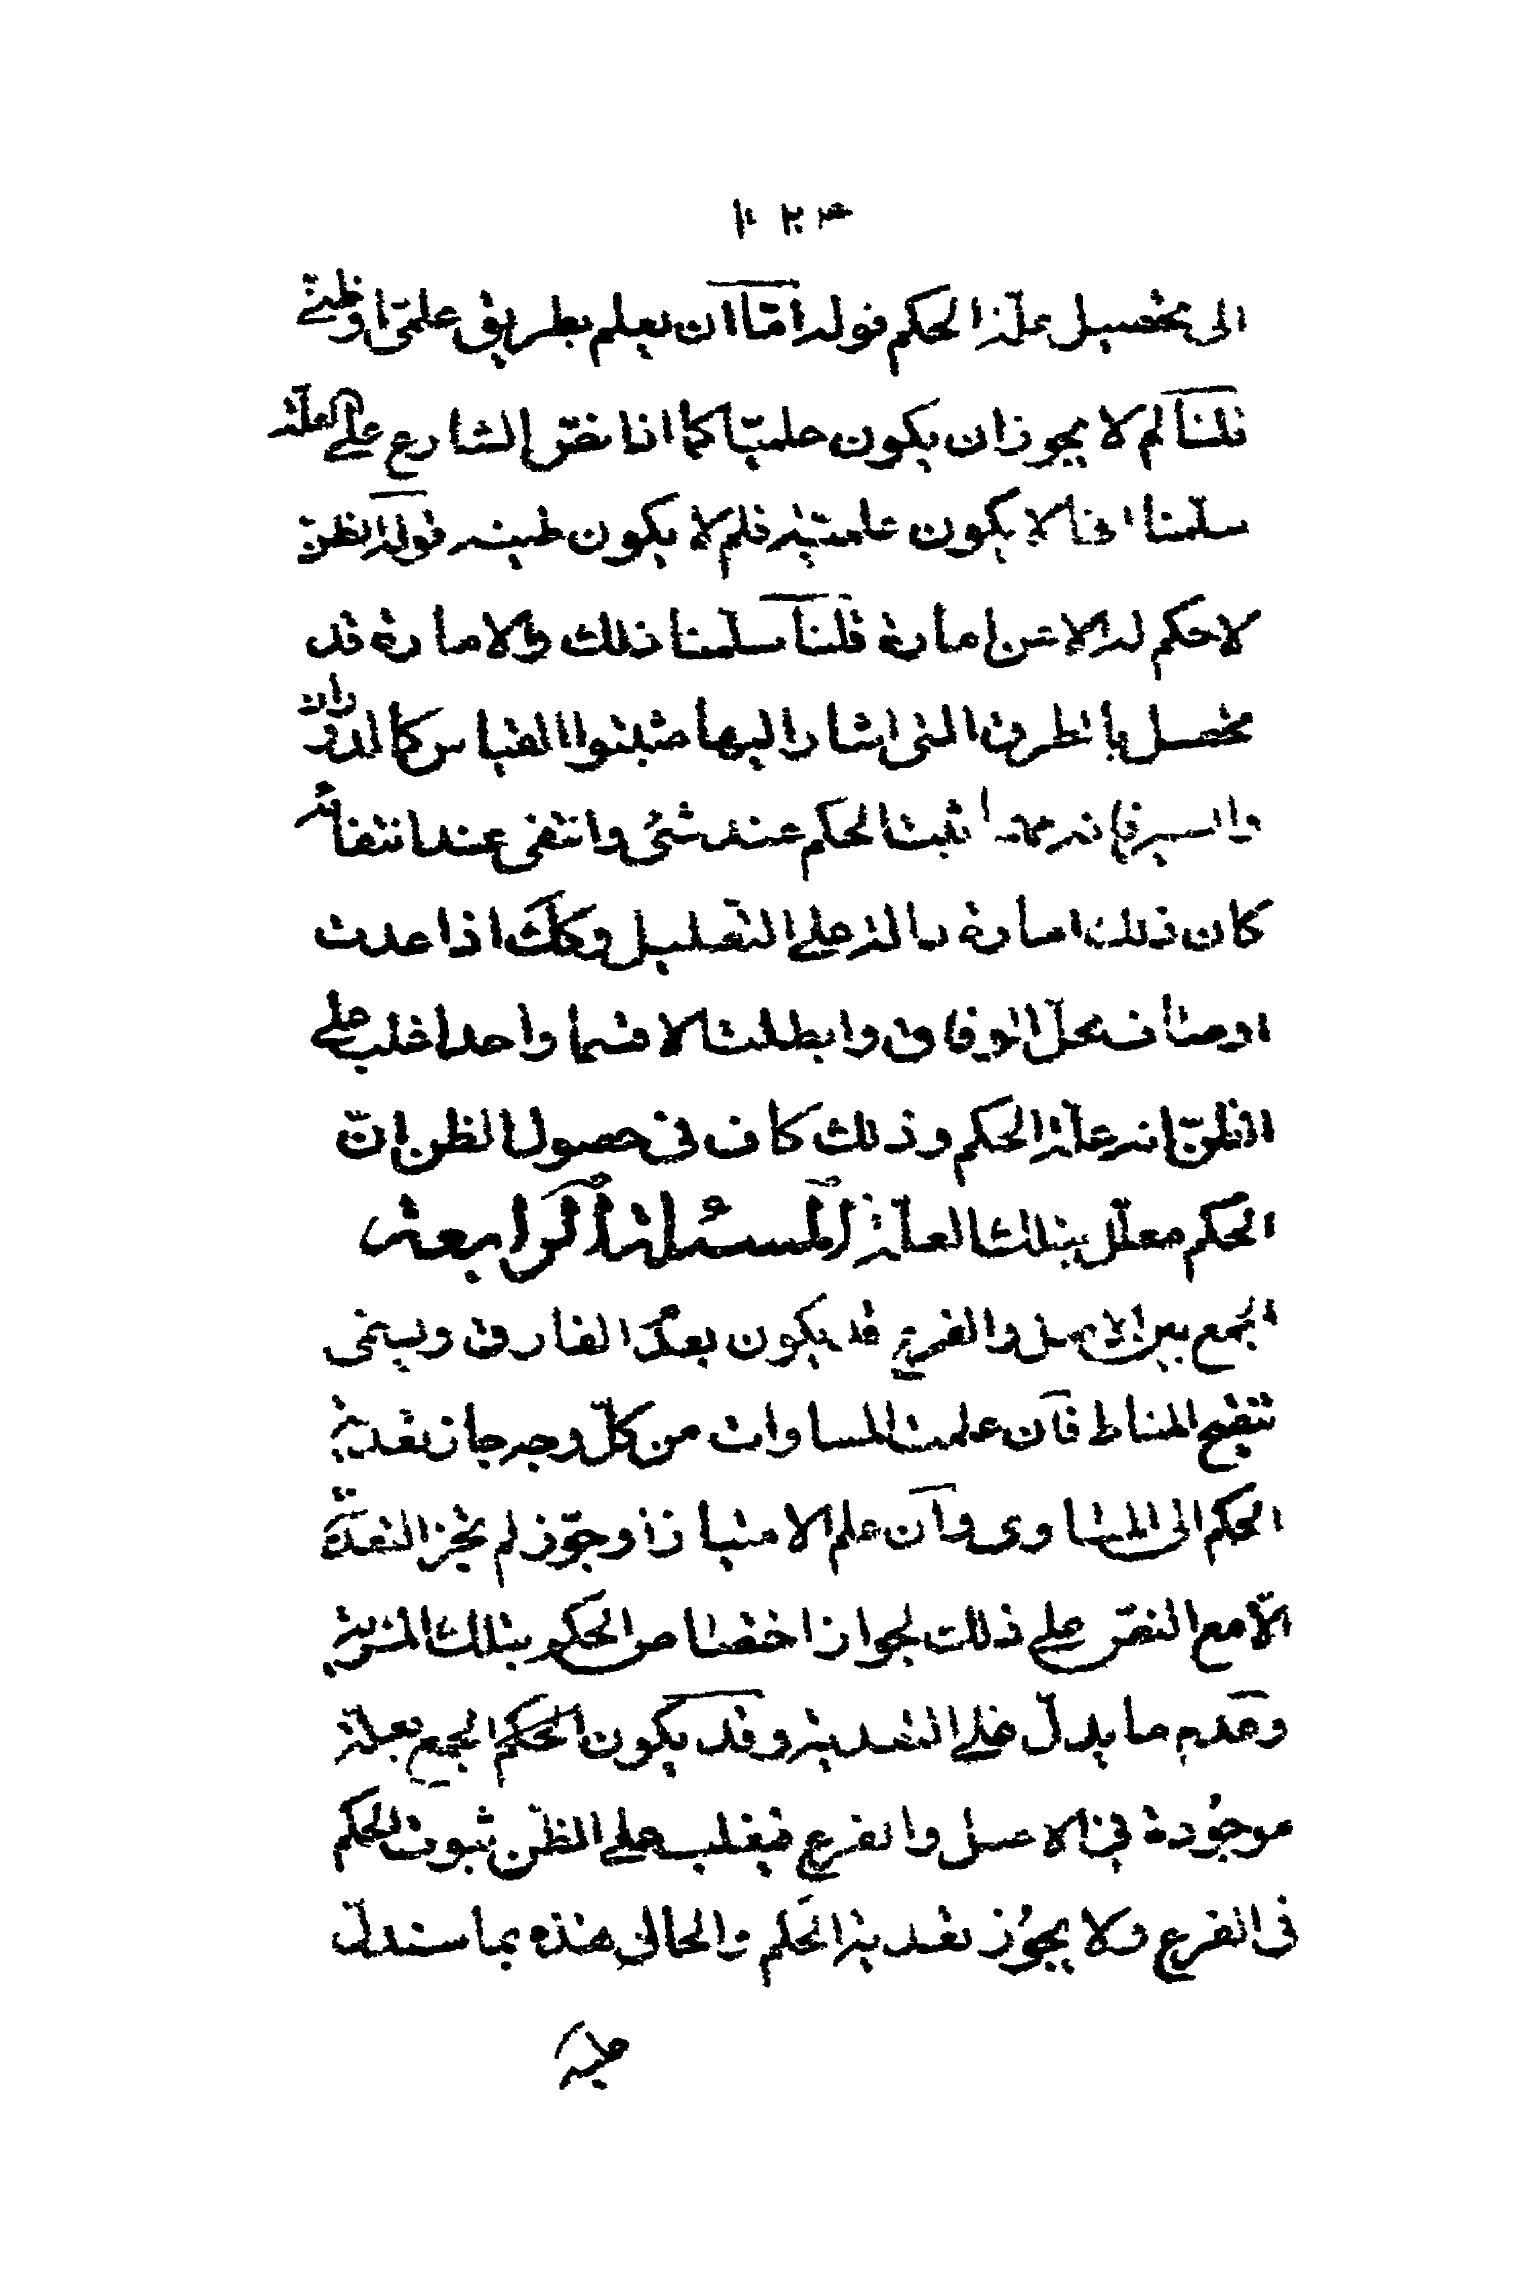 الى تحصيل علّة الحكم قوله امّا ان يعلم بطريق علمىّ او ظنىّ
قلنا لم لا يجوز ان يكون علميّا كما اذا نصّ الشارع على العلّة
سلّمنا انها لا يكون علميّة فلم لا يكون ظنية قوله الظنّ
لا حكم له الا عن امارة قلنا سلّمنا ذلك والامارة قد
تحصل بالطرق التى اشار اليها مثبتوا القياس كالدوران
والسبر فانه مهما ثبت الحكم عند شئ وانتفى عند انتفائه
كان ذلك امارة دالة على التعليل وكك اذا عدت
اوصاف محلّ الوفاق وابطلت الا قسما واحدا غلب على
الظنّ انه علّة الحكم وذلك كاف فى حصول الظن انّ
الحكم معلّل بتلك العلّة المسئلة الرابعة
الجمع بين الاصل والفرع قد يكون بعدم الفارق ويسمى
تنقيح المناط فان علمت المساوات من كلّ وجه جاز تعدية
الحكم الى المساوى وان علم الامتياز او جوّز لم يجز التعدية
الّا مع النصّ على ذلك لجواز اختصاص الحكم بتلك المزية
وعدم ما يدلّ على التعدية وقد يكون الجمع بعلّة
موجودة فى الاصل والفرع فيغلب على الظن ثبوت الحكم
فى الفرع ولا يجوز تعدية الحكم والحال هذه بما سندلّ
عليه